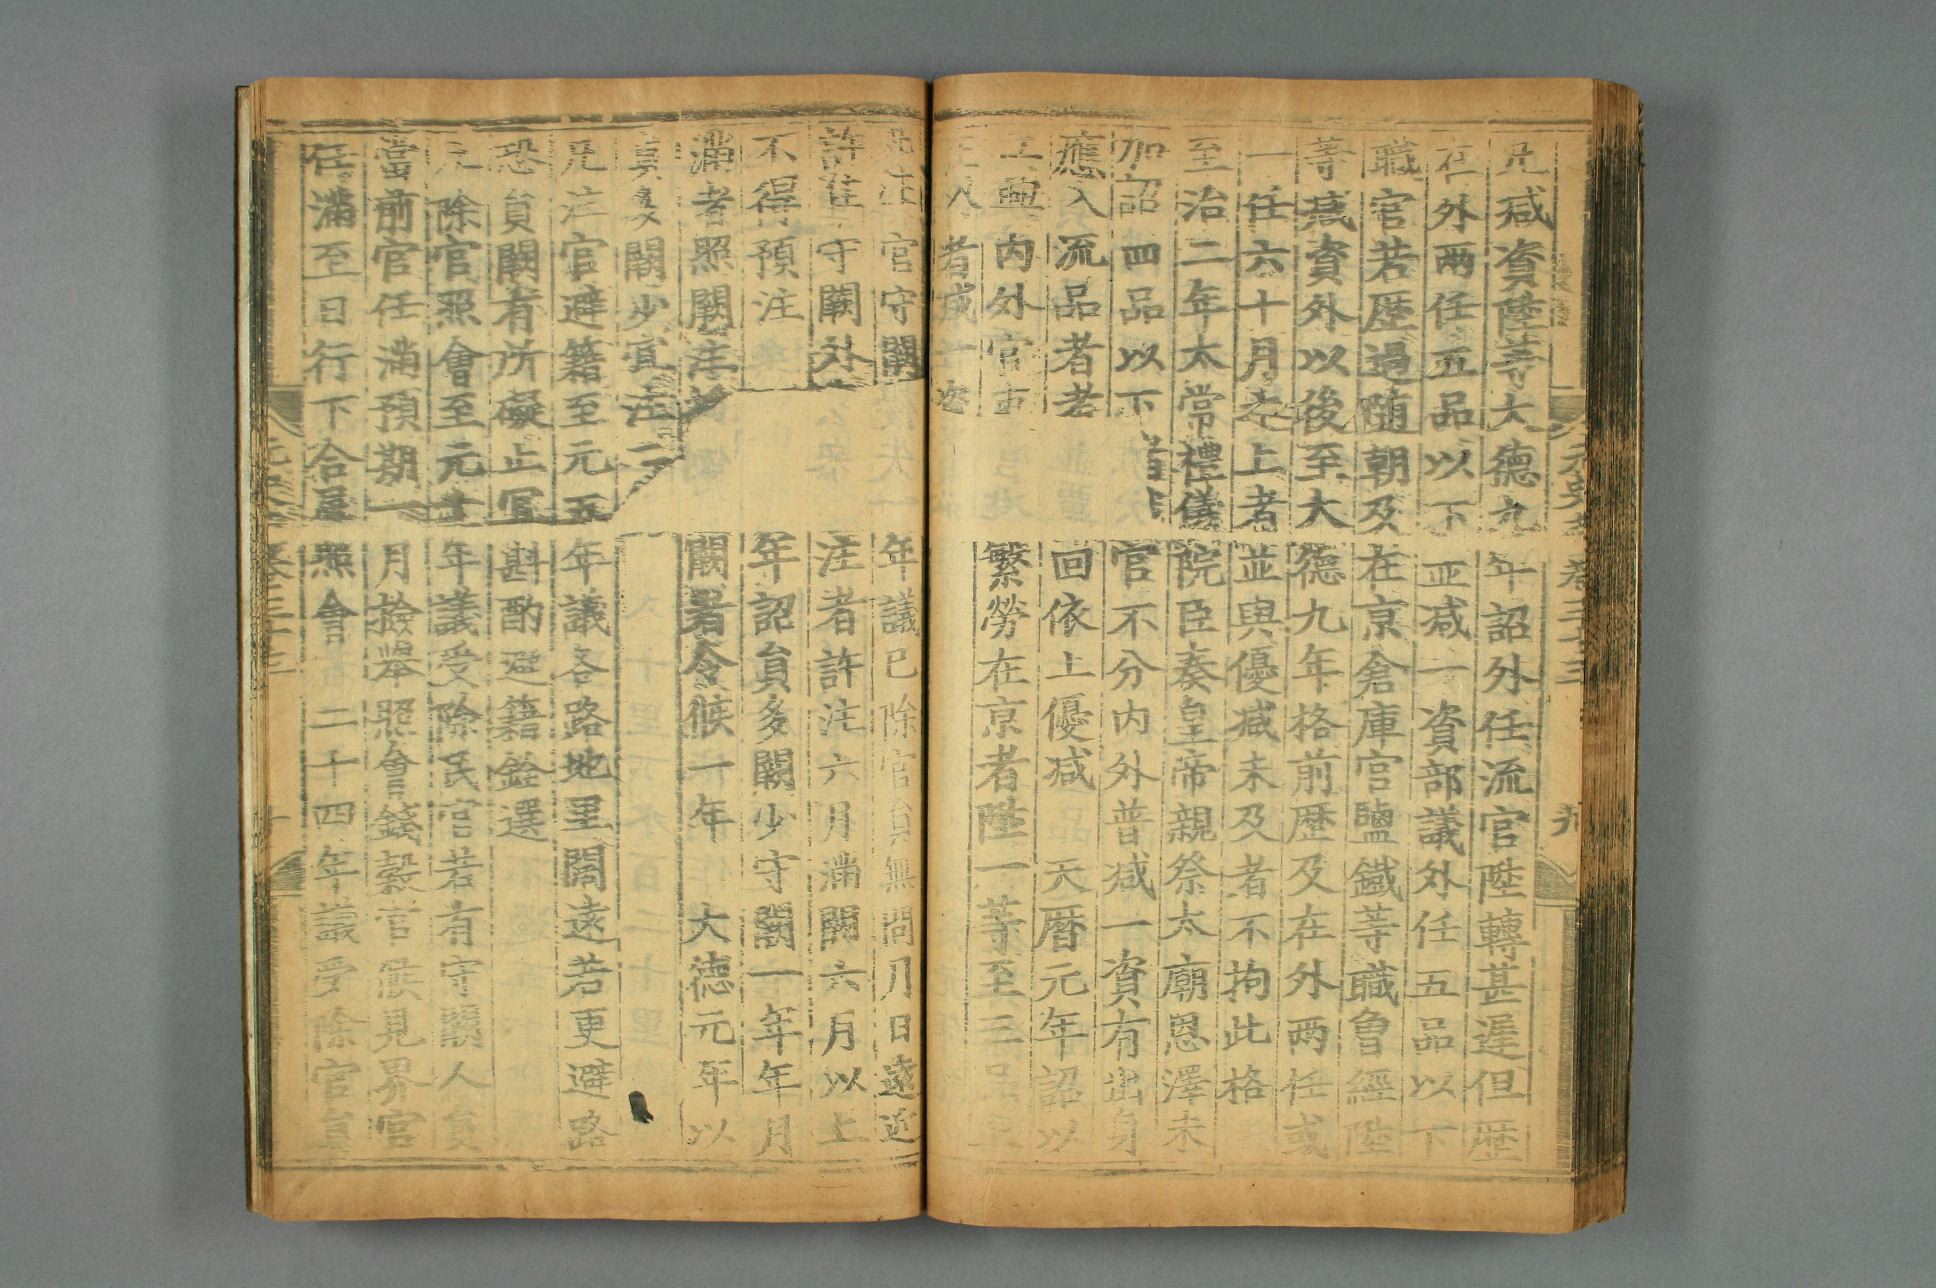 凡减資陞等大德九年詔外任流官陞轉甚遲但歷
在外兩任五品以下並减一資部議外任五品以下
職官若歷過隨朝及在京倉庫官鹽鐵等職曾經陞
等减資外以後至大德九年格前歷及在外兩任或
一任六十月之上者並與優减未及者不拘此格
至治二年太常禮儀院臣奏皇帝親祭太廟恩澤未
加詔四品以下官不分內外普减一資有出身
應入流品者考回依上優减天曆元年詔以
兵興內外官吏繁勞在京者陞一等至三品
者
注官守闕年議已除官員無問月日遠近
許注守闕外注者許注六月滿闕六月以上
不得預注年詔員多闕少守闕一年年月
滿者照闕注闕者令候一年大德元年以
員多闕少宜注二
凡注官避籍至元五年議各路地里闊遠若更避路
恐員闕有所礙止宜斟酌避籍銓選
除官照會至元二十年議受除民官若有守闕人員
當前官任滿預期一月檢舉照會錢穀官候見界官
任滿至日行下合屬照會二十四年議受除官員
元史
卷三十三